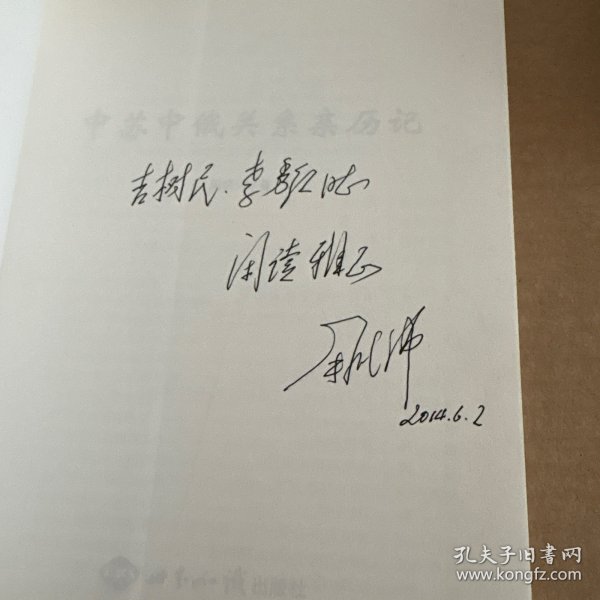 中苏中俄关系亲历记
吉树民.李
闲读雅正
周晓沛
2014.6.2
世界知识出版社
孔夫子旧书网
www.kongfz.com